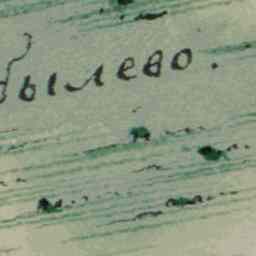 былево.